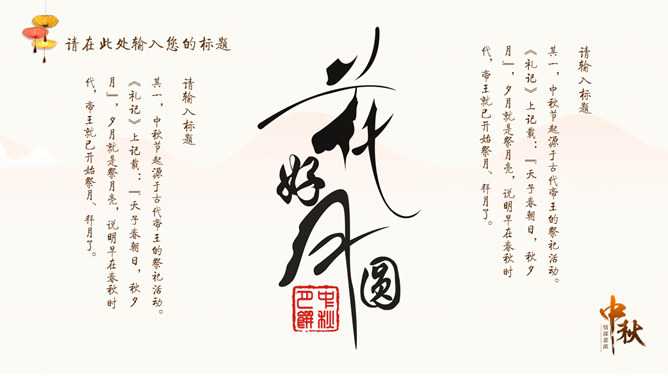 请在此处输入您的标题
请输入标题
其一，中秋节起源于古代帝王的祭祀活动。
《礼记》上记载：“天子春朝日，秋夕
月”，夕月就是祭月亮，说明早在春秋时
代，帝王就已开始祭月、拜月了。
花好月圆
中秋
请输入标题
其一，中秋节起源于古代帝王的祭祀活动。
《礼记》上记载：“天子春朝日，秋夕
月”，夕月就是祭月亮，说明早在春秋时
代，帝王就已开始祭月、拜月了。
中秋